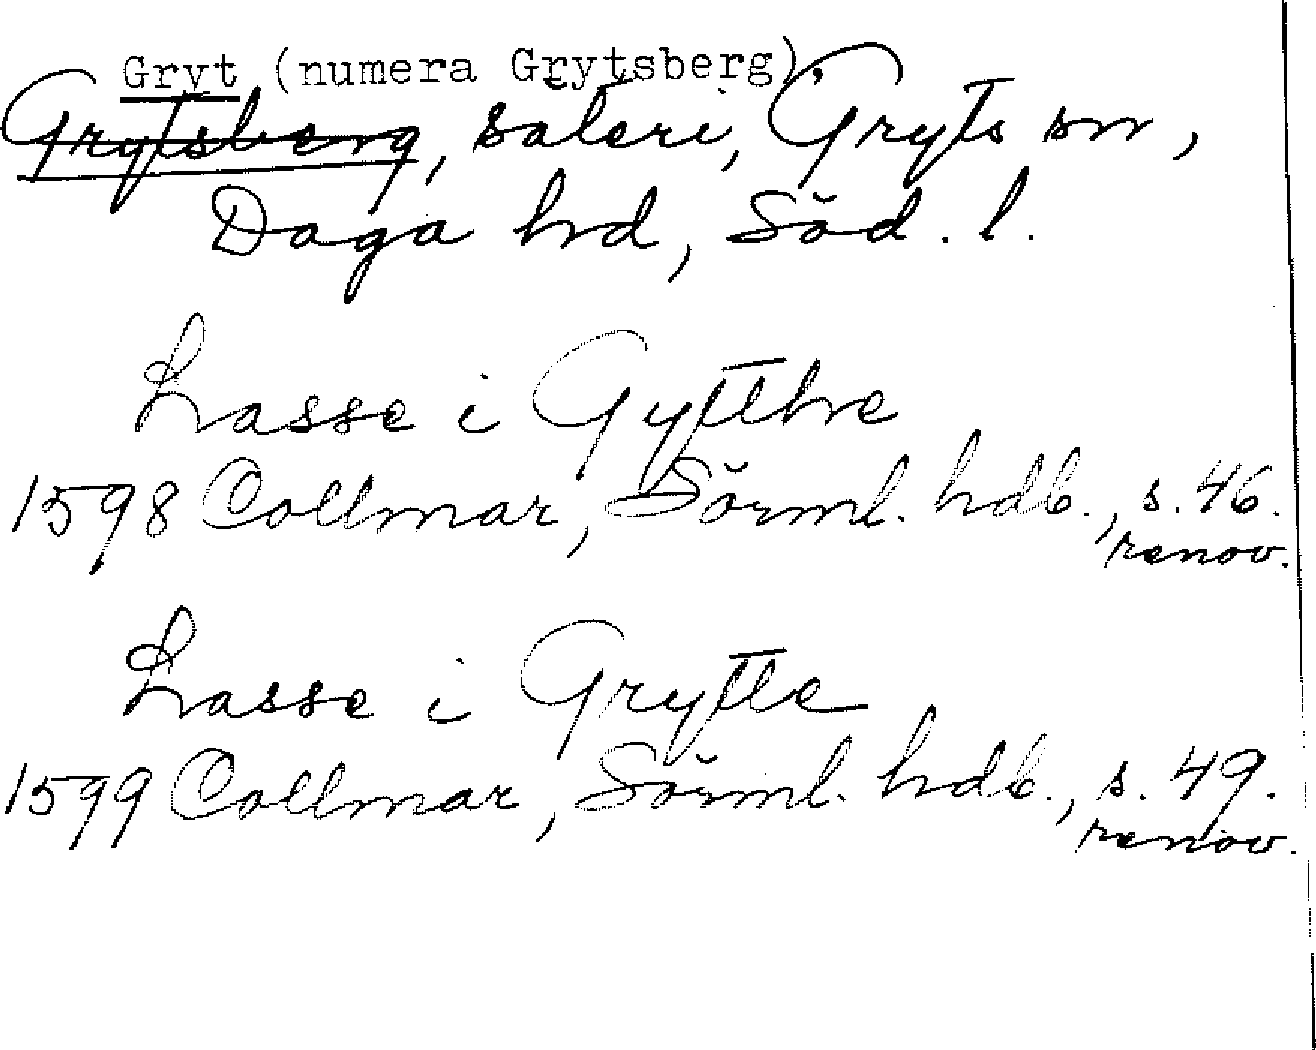 Gryt (numera Grytsberg),
Grytsberg, säteri, Gryts sn,
Daga hd, Söd. l.
Lasse i Gytthe
1598 Collmar, Sörml. hdb., s. 46.
renov.
Lasse i Grytte
1599 Collmar, Sörml. hdb., s. 49.
renov.